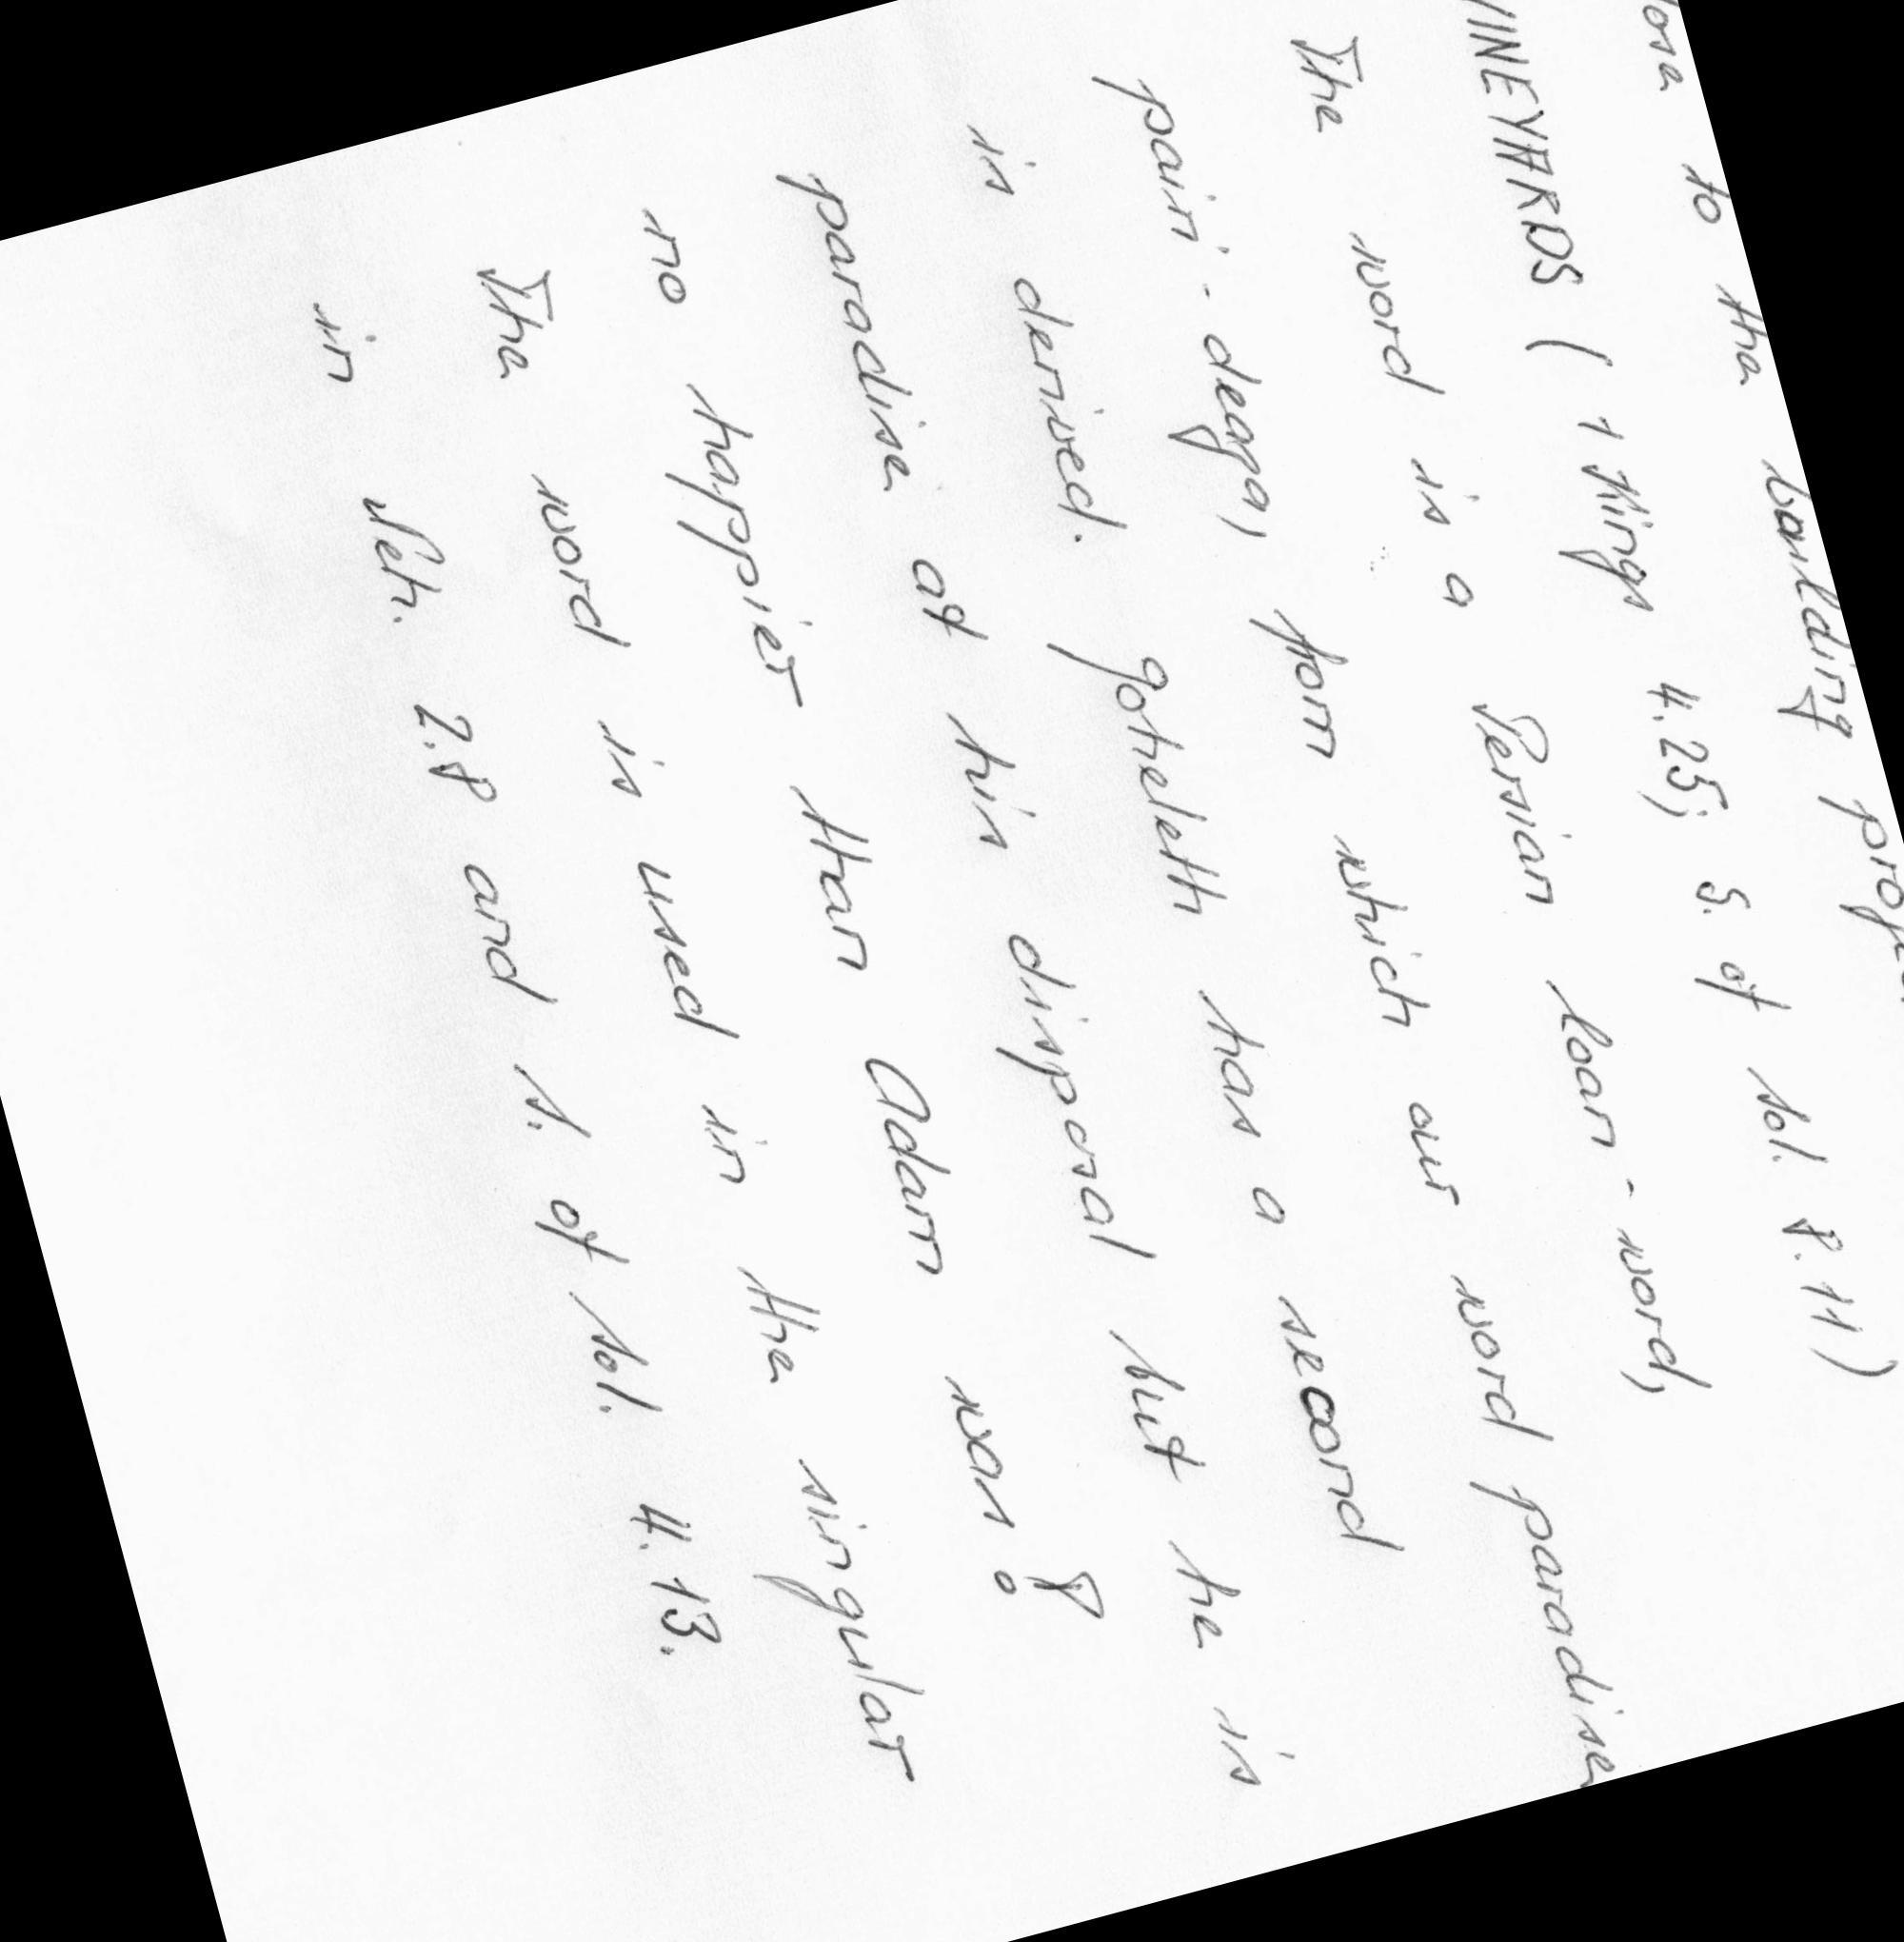 to the building
VINEYARDS (1 Kings 4.25; S. of Sol. 8.11)
The word is a Persian loan-word,
pairi-deaga, from which our word paradise
is derived. Qoheleth has a second
paradise at his disposal but the is
no happier than Adam was!
The word is used in the singular
in Neh. 2.8 and S. of Sol. 4.13.